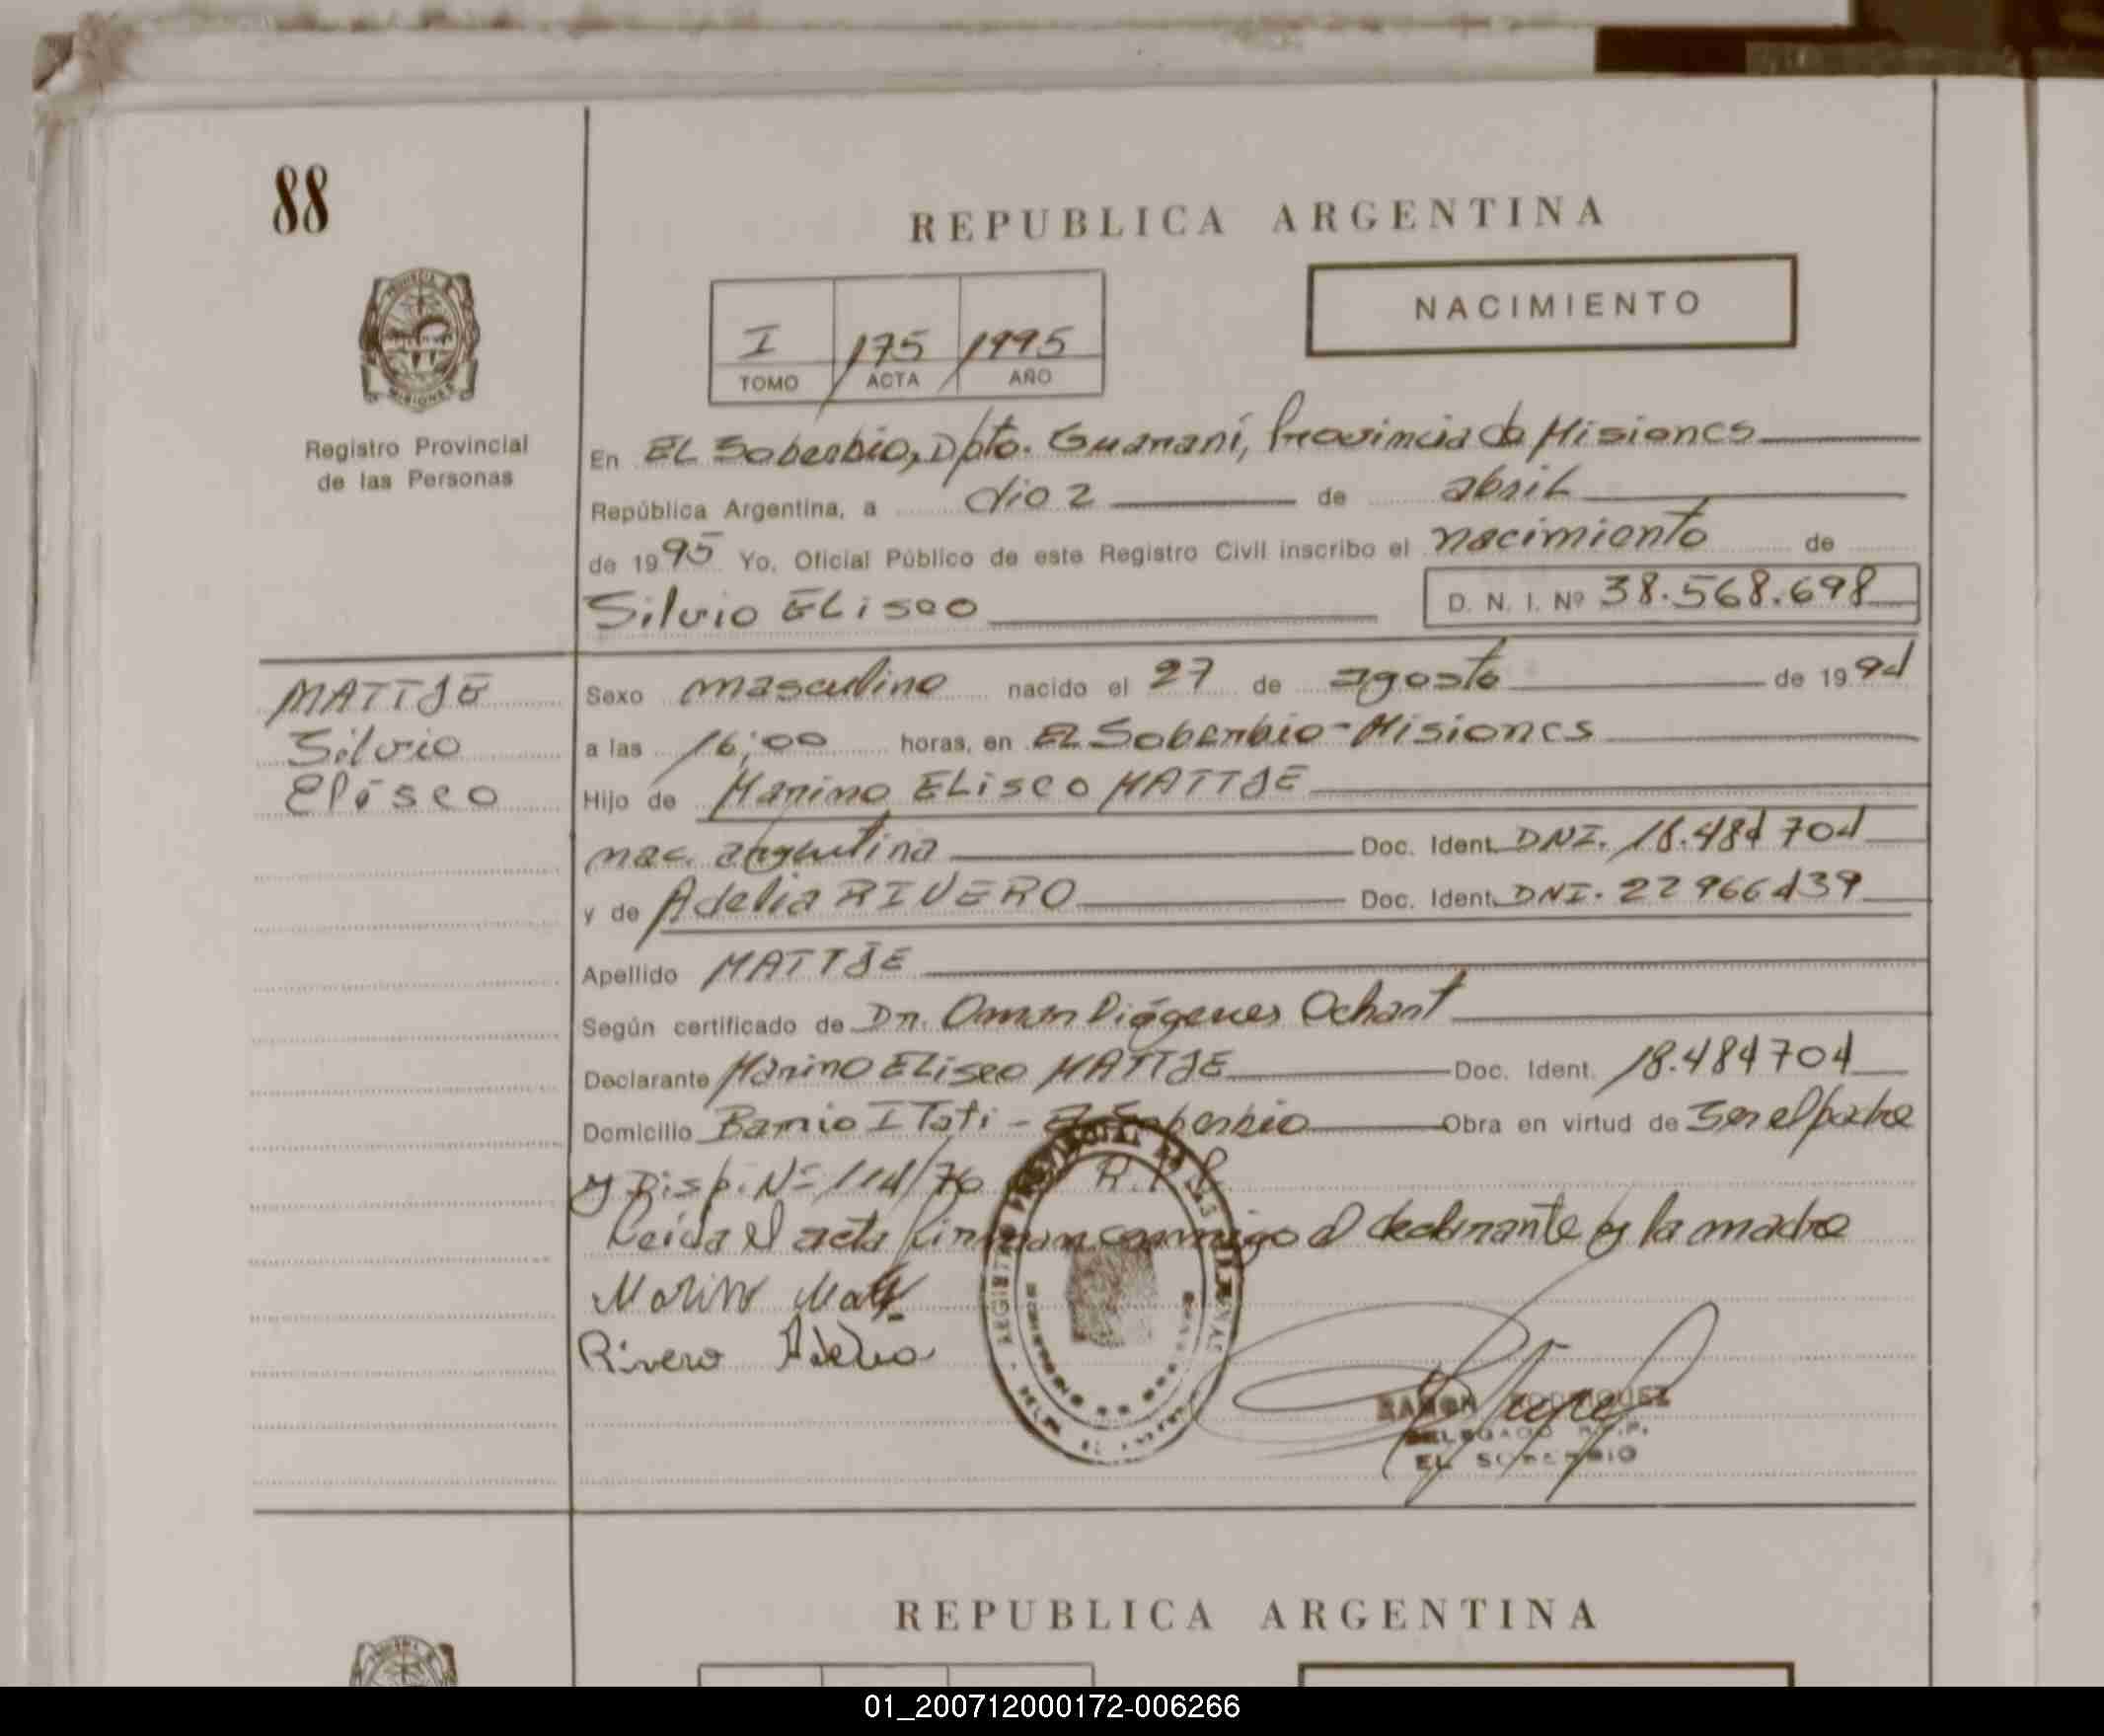 88
REPUBLICA ARGENTINA
NACIMIENTO
I 175 1995
TOMO ACTA AÑO
MISIONES
Registro Provincial
de las Personas
En EL Soberbio, Dpto. Guaraní, Provincia de Misiones
República Argentina, a día 2 de abril
de 1995 Yo, Oficial Público de este Registro Civil inscribo el nacimiento de
Silvio ELiseo D. N. I. Nº 38.568.698
MATTJE
Silvio
Eliseo
Sexo masculino nacido el 27 de agosto de 1994
a las 16:00 horas, en EL Soberbio - Misiones
Hijo de Marino ELiseo MATTJE
nac. argentina Doc. Ident. DNI. 18.484704
y de Adelia RIVERO Doc. Ident. DNI. 22966439
Apellido MATTJE
Según certificado de Dr. Omar Diógenes Ochant
Declarante Marino ELiseo MATTJE Doc. Ident. 18.484704
Domicilio Barrio ITati - El Soberbio Obra en virtud de Ser el padre
y Disp. Nº 114/76 R.P.P.
Leida el acta firman conmigo el declarante y la madre
Marino
Rivero Adelia
RAMON RODRIGUEZ
DELEGADO R.P.P.
EL SOBERBIO
REPUBLICA ARGENTINA
01_200712000172-006266